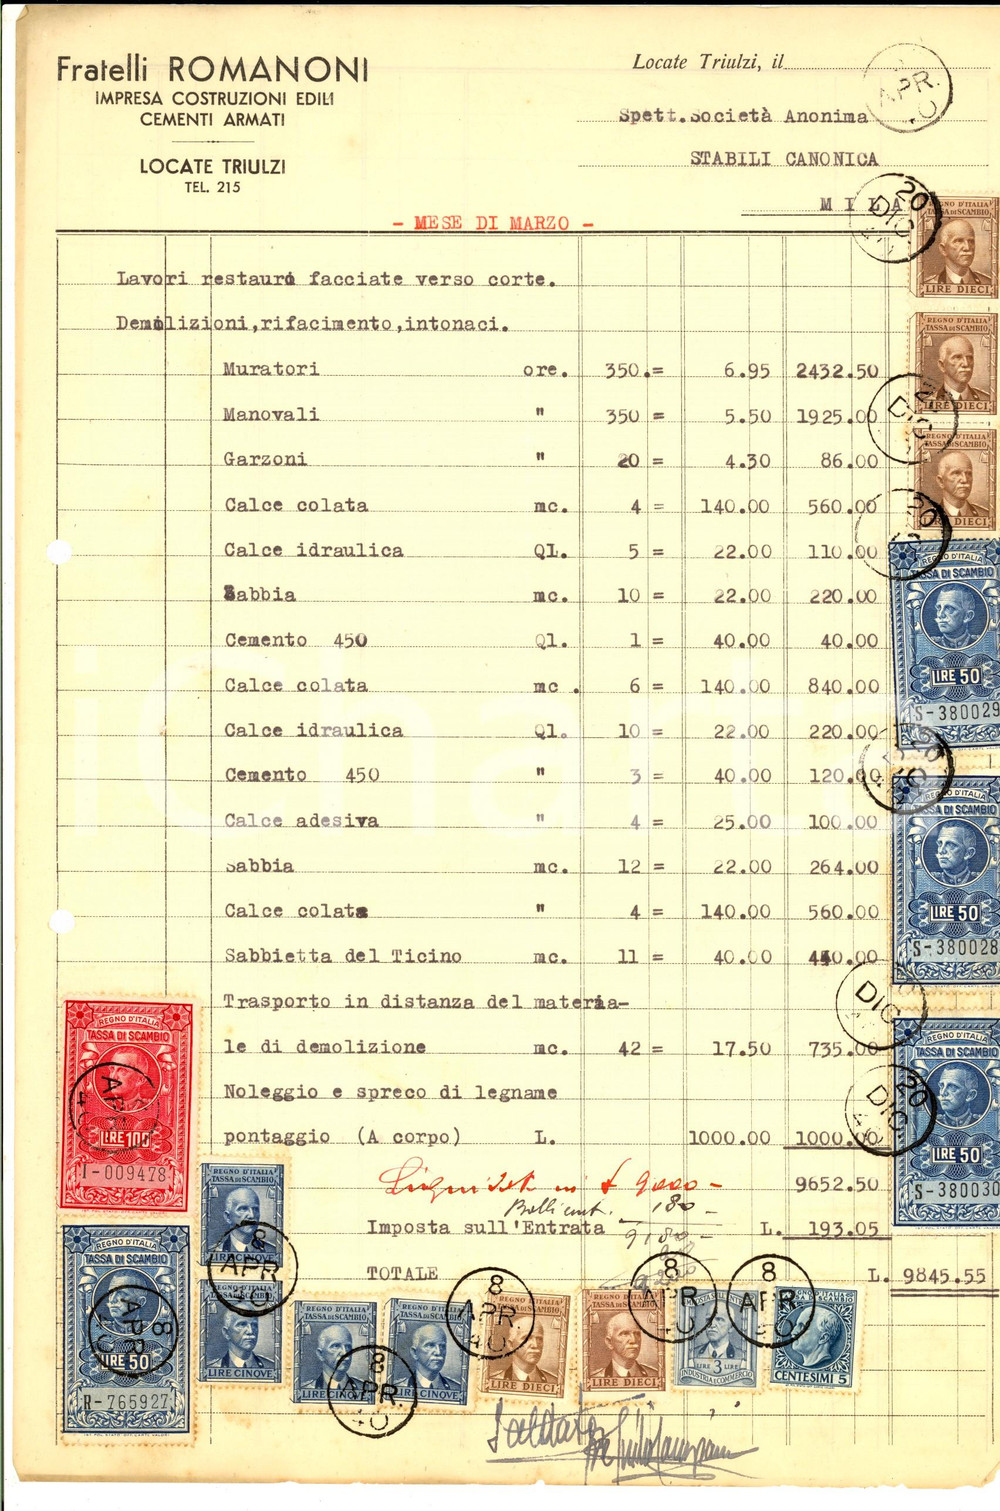 Fratelli ROMANONI
IMPRESA COSTRUZIONI EDILI
CEMENTI ARMATI
LOCATE TRIULZI
TEL. 215
Locate Triulzi, il
APR. 40
Spett.Società Anonima
STABILI CANONICA
MILA
- MESE DI MARZO -
Lavori restauri facciate verso corte.
Demolizioni,rifacimento,intonaci.
Muratori ore. 350.= 6.95 2432.50
Manovali " 350 = 5.50 1925.00
Garzoni " 20 = 4.30 86.00
Calce colata mc. 4 = 140.00 560.00
Calce idraulica QL. 5 = 22.00 110.00
Sabbia mc. 10 = 22.00 220.00
Cemento 450 Ql. 1 = 40.00 40.00
Calce colata mc . 6 = 140.00 840.00
Calce idraulica Ql. 10 = 22.00 220.00
Cemento 450 " 3 = 40.00 120.00
Calce adesiva " 4 = 25.00 100.00
Sabbia mc. 12 = 22.00 264.00
Calce colata " 4 = 140.00 560.00
Sabbietta del Ticino mc. 11 = 40.00 440.00
Trasporto in distanza del materia-
le di demolizione mc. 42 = 17.50 735.00
Noleggio e spreco di legname
pontaggio (A corpo) L. 1000.00 1000.00
9000 - 9652.50
180 -
Imposta sull'Entrata L. 193.05
9180 -
TOTALE L. 9845.55
REGNO D'ITALIA
TASSA DI SCAMBIO
LIRE DIECI
REGNO D'ITALIA
TASSA DI SCAMBIO
LIRE DIECI
REGNO D'ITALIA
TASSA DI SCAMBIO
LIRE DIECI
20 DIC
DIC
20
REGNO D'ITALIA
TASSA DI SCAMBIO
LIRE 50
S-380029
REGNO D'ITALIA
TASSA DI SCAMBIO
LIRE 50
S-380028
DIC
REGNO D'ITALIA
TASSA DI SCAMBIO
LIRE 50
S-380030
20 DIC 40
REGNO D'ITALIA
TASSA DI SCAMBIO
LIRE 100
I-009478
APR 40
REGNO D'ITALIA
TASSA DI SCAMBIO
LIRE 50
R-765927
8 APR 40
REGNO D'ITALIA
TASSA DI SCAMBIO
LIRE CINQUE
8 APR 40
LIRE CINQUE
LIRE CINQUE
LIRE CINQUE
8 APR 40
LIRE DIECI
8 APR. 40
LIRE DIECI
8 APR 40
LIRE 3 LIRE
INDUSTRIA E COMMERCIO
8 APR 40
CENTESIMI 5